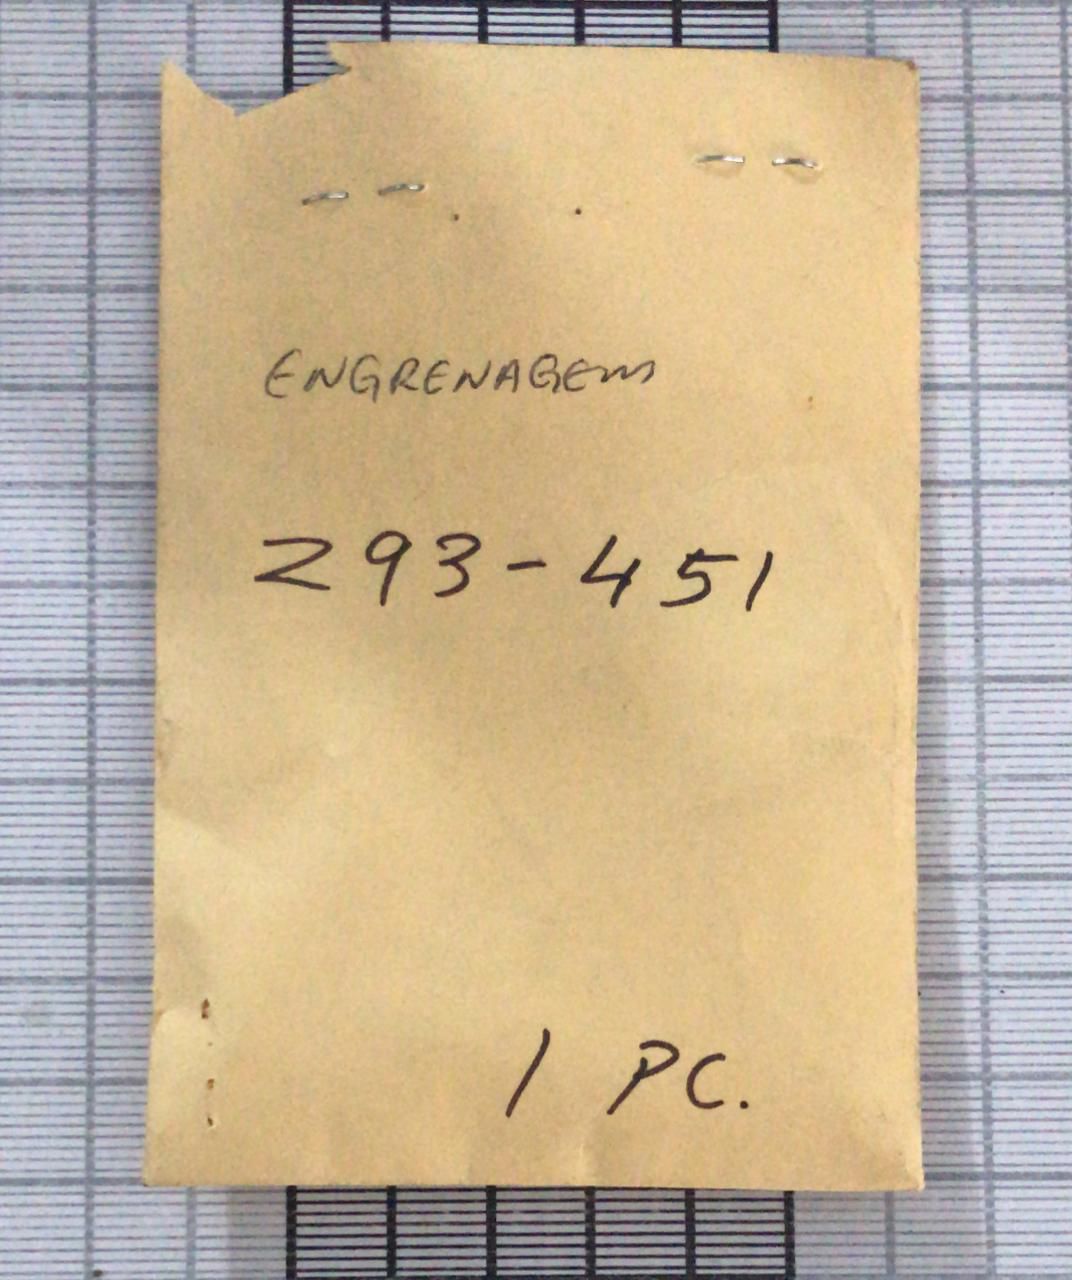 ENGRENAGEM
293-451
1 PC.